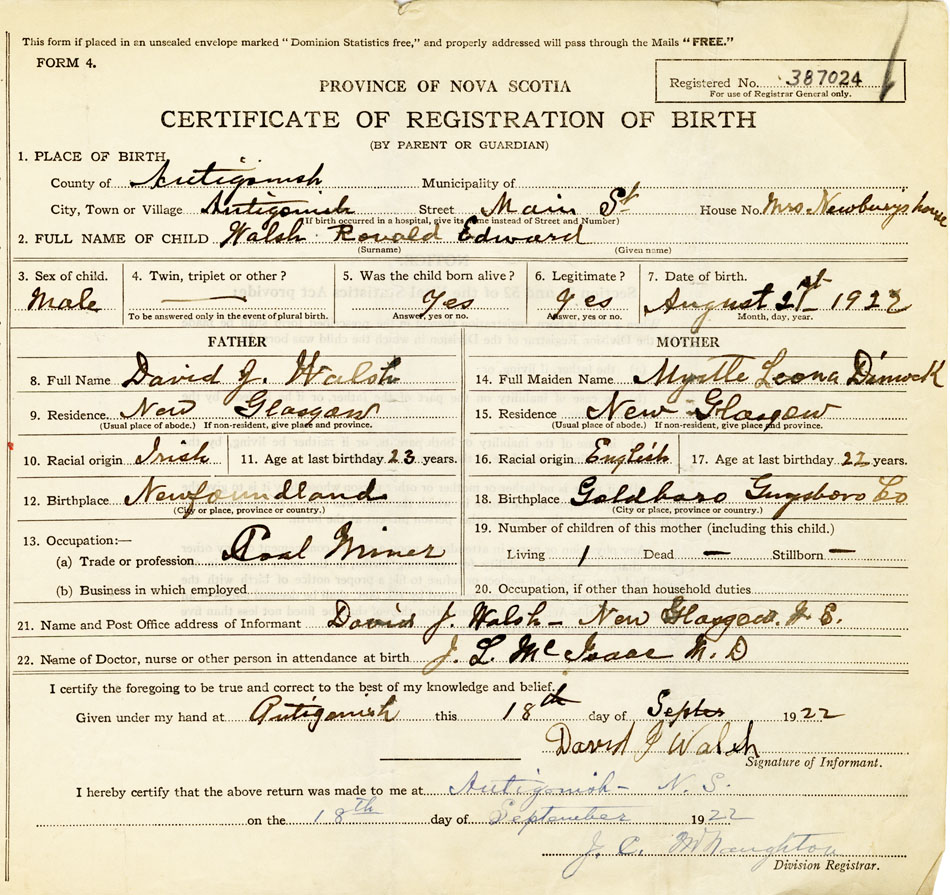 This form if placed in an unsealed envelope marked "Dominion Statistics free," and properly addressed will pass through the Mails "FREE."
FORM 4.
Registered No. 387024
For use of Registrar General only.
PROVINCE OF NOVA SCOTIA
CERTIFICATE OF REGISTRATION OF BIRTH
(BY PARENT OR GUARDIAN)
1. PLACE OF BIRTH
County of Antigonish Municipality of
City, Town or Village Antigonish Street Main St House No. Mrs Newbury's house
(If birth occurred in a hospital, give its name instead of Street and Number)
2. FULL NAME OF CHILD Walsh Ronald Edward
(Surname) (Given name)
3. Sex of child. 4. Twin, triplet or other? 5. Was the child born alive? 6. Legitimate? 7. Date of birth.
Male — Yes Yes August 21st 1922
To be answered only in the event of plural birth. Answer, yes or no. Answer, yes or no. Month, day, year.
FATHER MOTHER
8. Full Name David J. Walsh 14. Full Maiden Name Myrtle Leona Dimock
9. Residence. New Glasgow 15. Residence New Glasgow
(Usual place of abode.) If non-resident, give place and province. (Usual place of abode.) If non-resident, give place and province.
10. Racial origin Irish 11. Age at last birthday 23 years. 16. Racial origin English 17. Age at last birthday 22 years.
12. Birthplace Newfoundland 18. Birthplace Goldboro Guysboro Co
(City or place, province or country.) (City or place, province or country.)
13. Occupation:— 19. Number of children of this mother (including this child.)
(a) Trade or profession Coal Miner Living 1 Dead — Stillborn —
(b) Business in which employed 20. Occupation, if other than household duties
21. Name and Post Office address of Informant David J. Walsh – New Glasgow. N. S.
22. Name of Doctor, nurse or other person in attendance at birth J. L. McIsaac M. D
I certify the foregoing to be true and correct to the best of my knowledge and belief.
Given under my hand at Antigonish this 18th day of Septer 1922
David J Walsh
Signature of Informant.
I hereby certify that the above return was made to me at Antigonish – N. S.
on the 18th day of September 1922
J. C. McNaughton
Division Registrar.